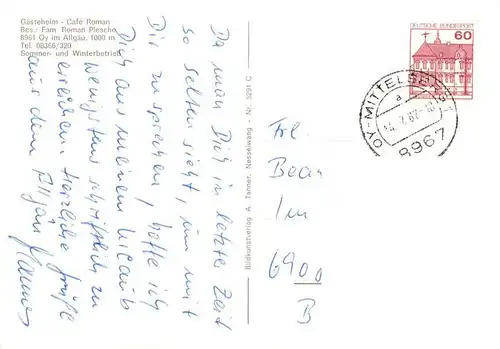 Gästeheim - Café Roman
Bes.: Fam. Roman Plesche
8961 Oy im Allgäu, 1000 m
Tel. 08366/320
Sommer- und Winterbetrieb
Da man Dich in letzter Zeit
so selten sieht, um mit
Dir zu sprechen, hoffe ich
Dich aus meinem Urlaub
wenigstens schriftlich zu
erreichen. Herzliche Grüße
aus dem Allgäu
Bildkunstverlag A. Tanner, Nesselwang - Nr. 5291 C
DEUTSCHE BUNDESPOST
60
OY-MITTELBERG
a
8967
Frl.
Im
6900